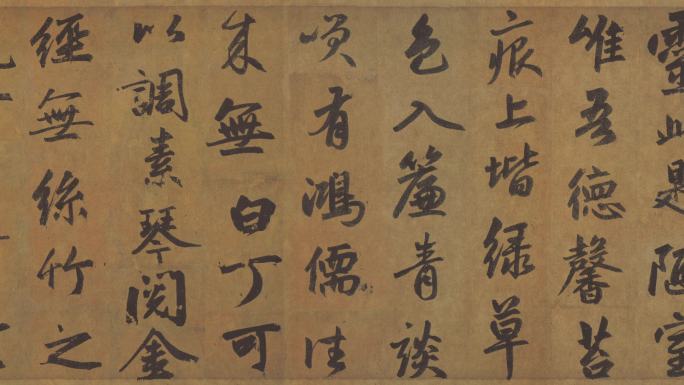 靈此是陋室
唯吾德馨苔
痕上堦緑草
色入簾青談
咲有鴻儒往
来無白丁可
以調素琴閱金
經無絲竹之